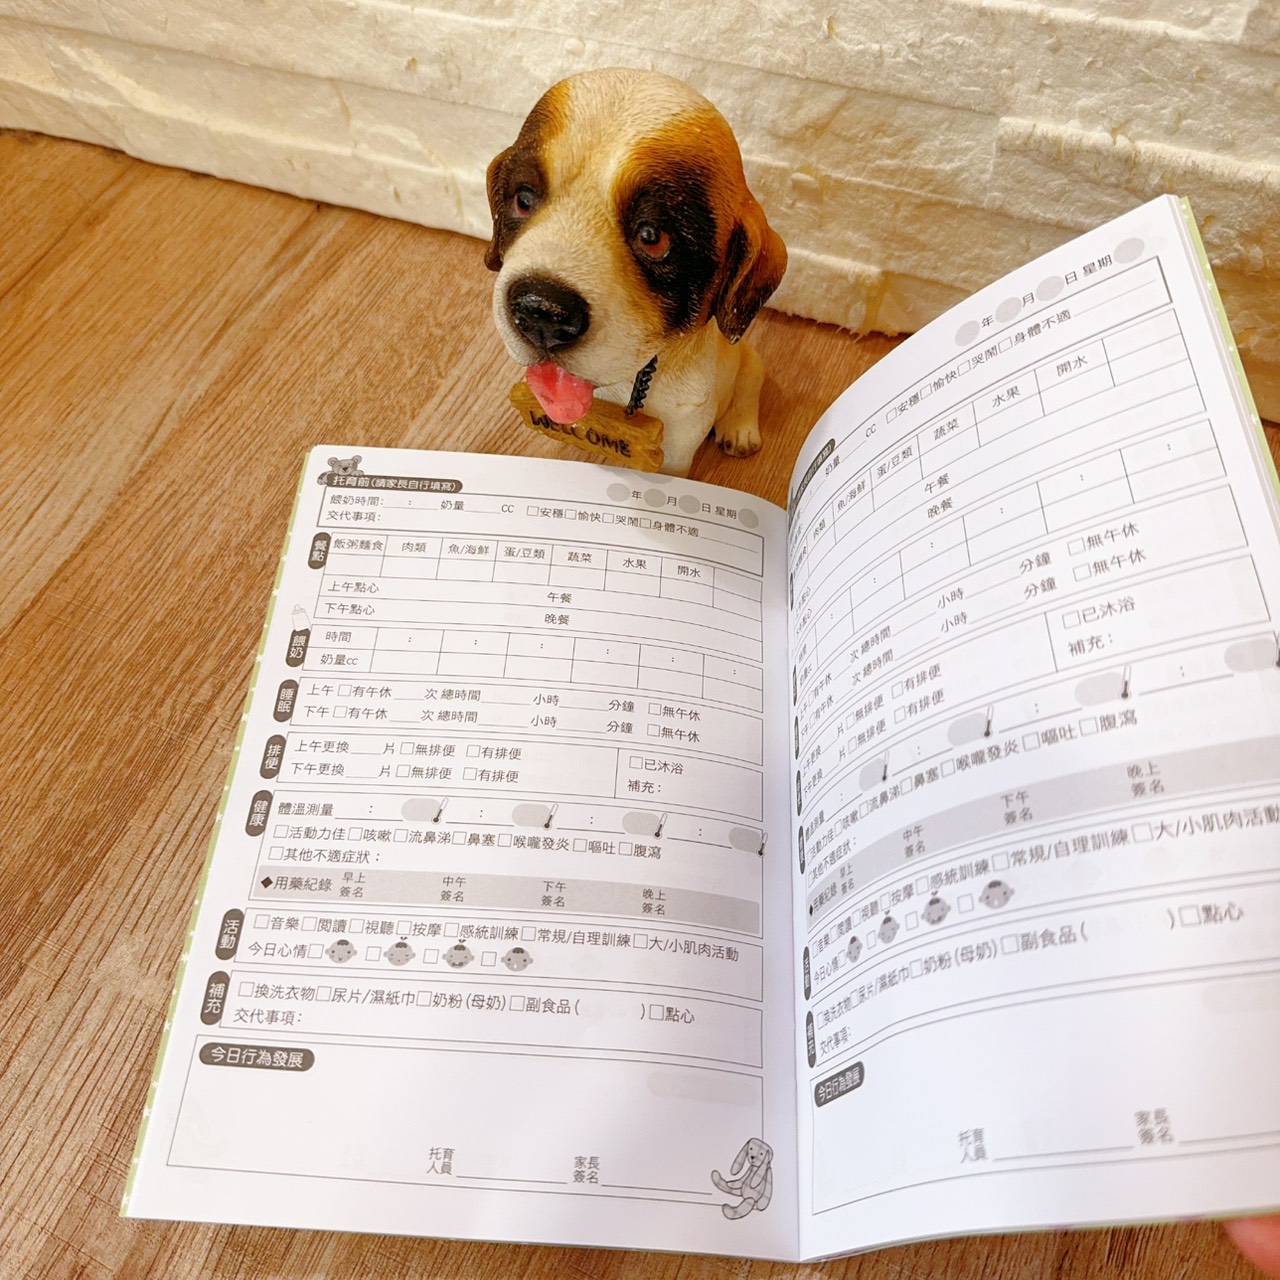 WELCOME
托育前(請家長自行填寫)
年 月 日 星期
餵奶時間: : 奶量 CC □安穩□愉快□哭鬧□身體不適
交代事項:
餐點
飯粥麵食 肉類 魚/海鮮 蛋/豆類 蔬菜 水果 開水
上午點心 午餐
下午點心 晚餐
餵奶
時間 : : : : : :
奶量cc
睡眠
上午 □有午休 次 總時間 小時 分鐘 □無午休
下午 □有午休 次 總時間 小時 分鐘 □無午休
排便
上午更換 片 □無排便 □有排便 □已沐浴
下午更換 片 □無排便 □有排便 補充:
健康
體溫測量 : : : :
□活動力佳□咳嗽□流鼻涕□鼻塞□喉嚨發炎□嘔吐□腹瀉
□其他不適症狀:
◆用藥紀錄 早上簽名 中午簽名 下午簽名 晚上簽名
活動
□音樂□閱讀□視聽□按摩□感統訓練□常規/自理訓練□大/小肌肉活動
今日心情□ □ □ □
補充
□換洗衣物□尿片/濕紙巾□奶粉(母奶)□副食品( )□點心
交代事項:
今日行為發展
托育人員 家長簽名
年 月 日 星期
奶量 CC □安穩□愉快□哭鬧□身體不適
肉類 魚/海鮮 蛋/豆類 蔬菜 水果 開水
午餐
晚餐
: : : : :
□有午休 次 總時間 小時 分鐘 □無午休
□有午休 次 總時間 小時 分鐘 □無午休
上午更換 片 □無排便 □有排便 □已沐浴
下午更換 片 □無排便 □有排便 補充:
體溫測量 : : : :
□活動力佳□咳嗽□流鼻涕□鼻塞□喉嚨發炎□嘔吐□腹瀉
□其他不適症狀:
◆用藥紀錄 早上簽名 中午簽名 下午簽名 晚上簽名
活動
□音樂□閱讀□視聽□按摩□感統訓練□常規/自理訓練□大/小肌肉活動
今日心情□ □ □ □
補充
□換洗衣物□尿片/濕紙巾□奶粉(母奶)□副食品( )□點心
交代事項:
今日行為發展
托育人員 家長簽名